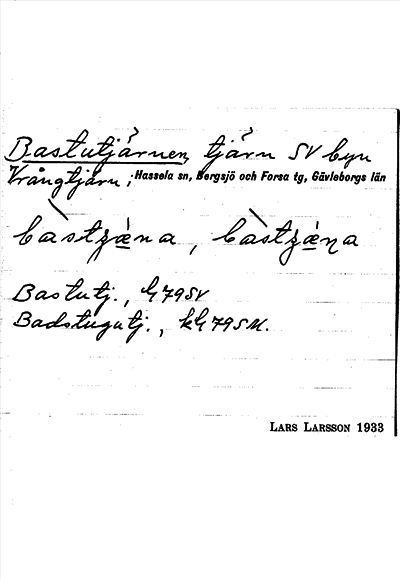 Bastutjärnen, tjärn SV byn
Vrångtjärn; Hassela sn, Bergsjö och Forsa tg, Gävleborgs län
Bastutj., G79SV
Badstugutj., kG79SM.
LARS LARSSON 1933